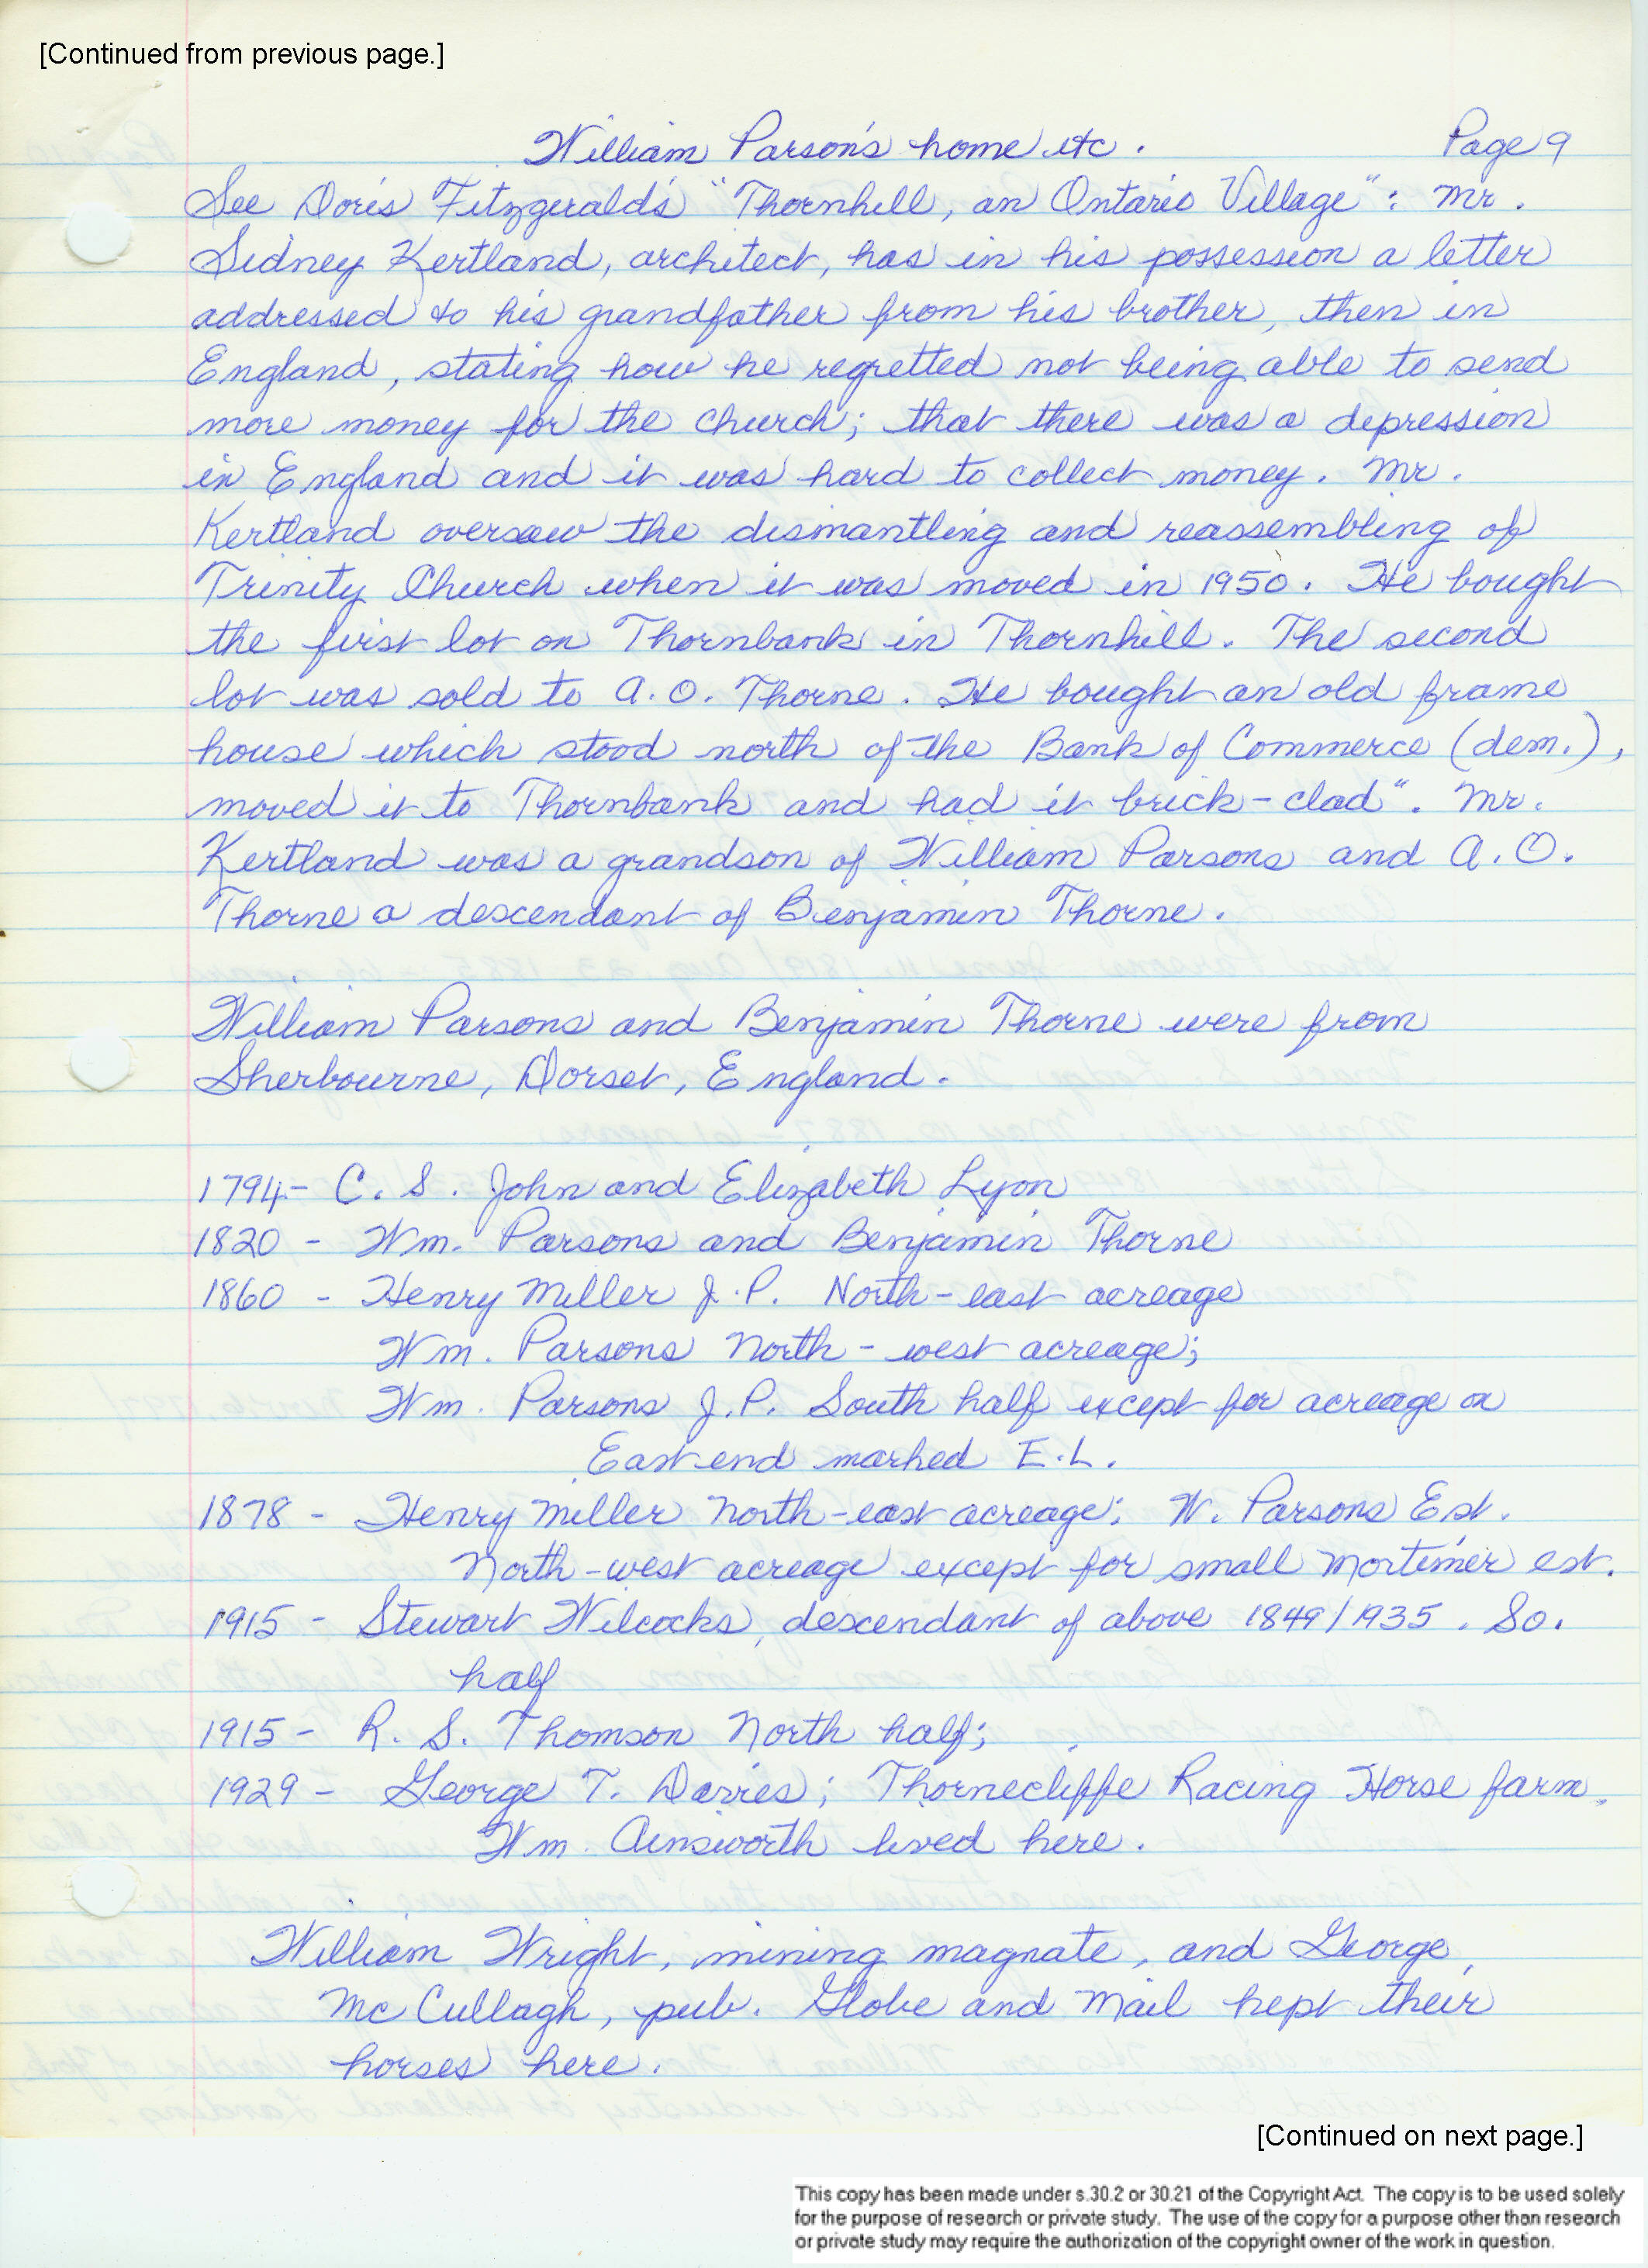 [Continued from previous page.]
William Parson's home etc. Page 9
See Doris Fitzgerald's "Thornhill, an Ontario Village": Mr.
Sidney Kertland, architect, has in his possession a letter
addressed to his grandfather from his brother, then in
England, stating how he regretted not being able to send
more money for the church; that there was a depression
in England and it was hard to collect money. Mr.
Kertland oversaw the dismantling and reassembling of
Trinity Church when it was moved in 1950. He bought
the first lot on Thornbank in Thornhill. The second
lot was sold to A. O. Thorne. He bought an old frame
house which stood north of the Bank of Commerce (dem.),
moved it to Thornbank and had it brick-clad". Mr.
Kertland was a grandson of William Parsons and A. O.
Thorne a descendant of Benjamin Thorne.
William Parsons and Benjamin Thorne were from
Sherbourne, Dorset, England.
1794 - C. S. John and Elizabeth Lyon
1820 - Wm. Parsons and Benjamin Thorne
1860 - Henry Miller J.P. North-east acreage
Wm. Parsons North-west acreage;
Wm. Parsons J.P. South half except for acreage on
East end marked E.L.
1878 - Henry Miller North-east acreage; W. Parsons Est.
North-west acreage except for small Mortimer est.
1915 - Stewart Wilcocks, descendant of above 1849/1935. So.
half
1915 - R. S. Thomson North half;
1929 - George T. Davies; Thornecliffe Racing Horse farm.
Wm. Ainsworth lived here.
William Wright, mining magnate, and George
McCullagh, pub. Globe and Mail kept their
horses here.
[Continued on next page.]
This copy has been made under s.30.2 or 30.21 of the Copyright Act. The copy is to be used solely
for the purpose of research or private study. The use of the copy for a purpose other than research
or private study may require the authorization of the copyright owner of the work in question.